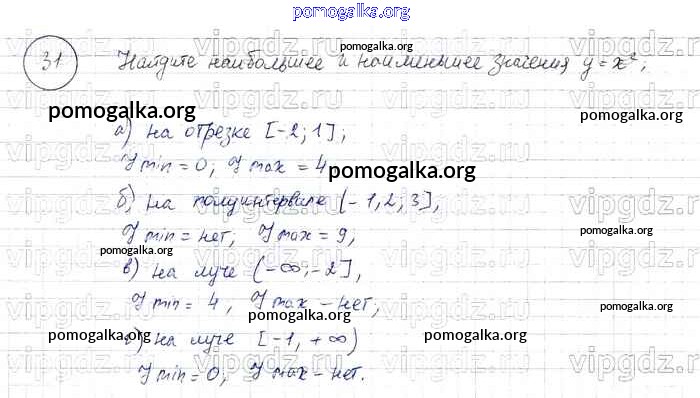 pomogalka.org
31 Найдите наибольшее и наименьшее значения y = x²;
pomogalka.org
pomogalka.org
а) на отрезке [-2; 1];
y min = 0; y max = 4
pomogalka.org
б) на полуинтервале (-1,2; 3],
pomogalka.org
y min = нет, y max = 9,
pomogalka.org
pomogalka.org
в) на луче (-∞; -2],
y min = 4, y max - нет,
pomogalka.org
pomogalka.org
pomogalka.org
г) на луче [-1, +∞)
y min = 0, y max - нет.
pomogalka.org
vipgdz.ru vipgdz.ru vipgdz.ru